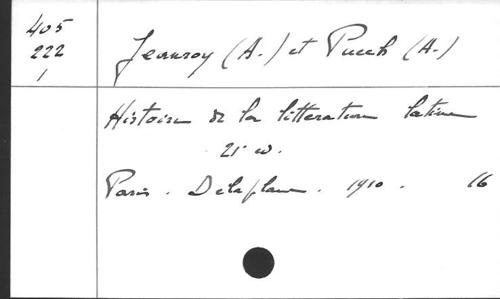 405
222
1
Jeanroy (A.) et Puech (A.)
Histoire de la littérature latine
Paris. Delaplane. 1910. 16